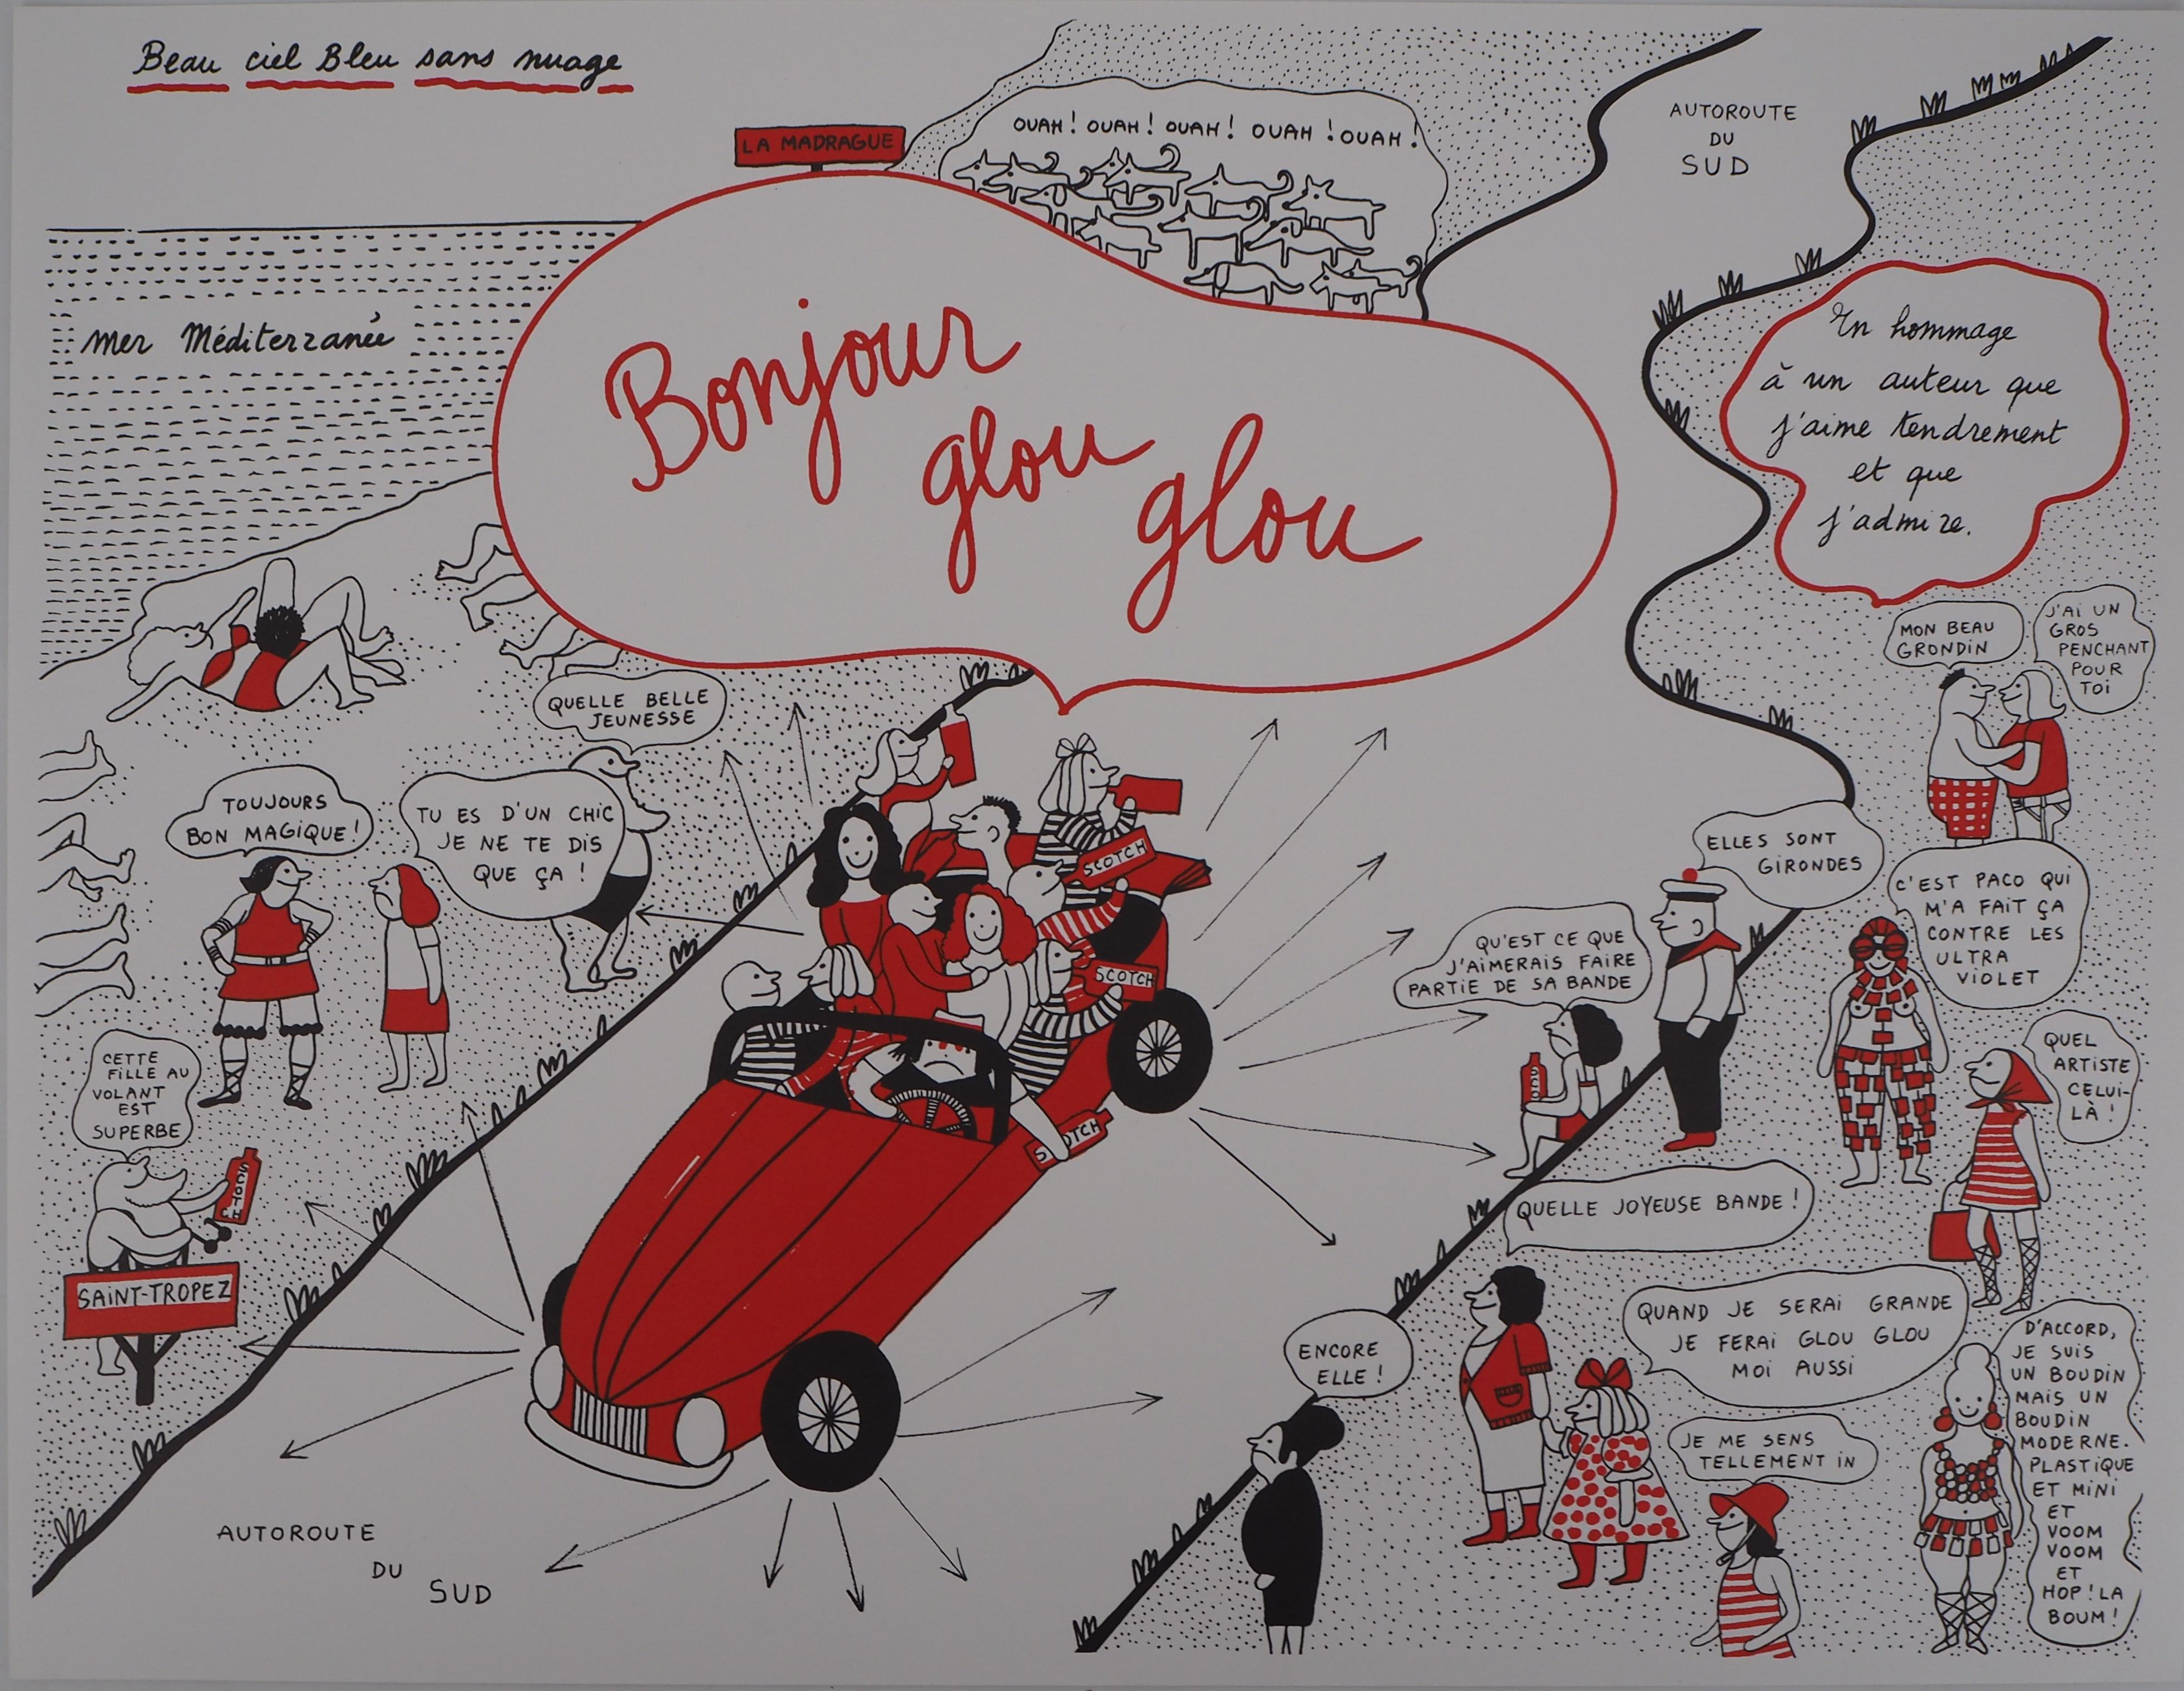 Beau ciel Bleu sans nuage
LA MADRAGUE
OUAH! OUAH! OUAH! OUAH! OUAH!
AUTOROUTE
DU
SUD
mer Méditerranée
Bonjour
glou
glou
En hommage
à un auteur que
j'aime tendrement
et que
j'admire.
MON BEAU
GRONDIN
J'AI UN
GROS
PENCHANT
POUR
TOI
QUELLE BELLE
JEUNESSE
TOUJOURS
BON MAGIQUE!
TU ES D'UN CHIC
JE NE TE DIS
QUE ÇA!
SCOTCH
SCOTCH
SCOTCH
ELLES SONT
GIRONDES
C'EST PACO QUI
M'A FAIT ÇA
CONTRE LES
ULTRA
VIOLET
QU'EST CE QUE
J'AIMERAIS FAIRE
PARTIE DE SA BANDE
QUEL
ARTISTE
CELUI-
LÀ!
CETTE
FILLE AU
VOLANT
EST
SUPERBE
SCOTCH
SAINT-TROPEZ
QUELLE JOYEUSE BANDE!
QUAND JE SERAI GRANDE
JE FERAI GLOU GLOU
MOI AUSSI
ENCORE
ELLE!
JE ME SENS
TELLEMENT IN
D'ACCORD,
JE SUIS
UN BOUDIN
MAIS UN
BOUDIN
MODERNE.
PLASTIQUE
ET MINI
ET
VOOM
VOOM
ET
HOP! LA
BOUM!
AUTOROUTE
DU
SUD